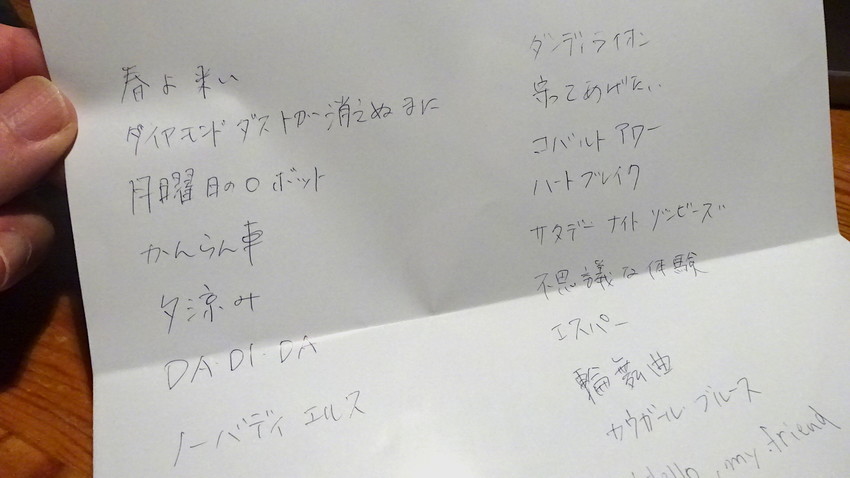 春よ来い
ダイヤモンドダストが消えぬまに
月曜日のロボット
かんらん車
夕涼み
DA・DI・DA
ノーバディ エルス
ダンディライオン
守ってあげたい
コバルト アワー
ハートブレイク
サタデー ナイト ゾンビーズ
不思議な体験
エスパー
輪舞曲
カウガール ブルース
Hello, my friend